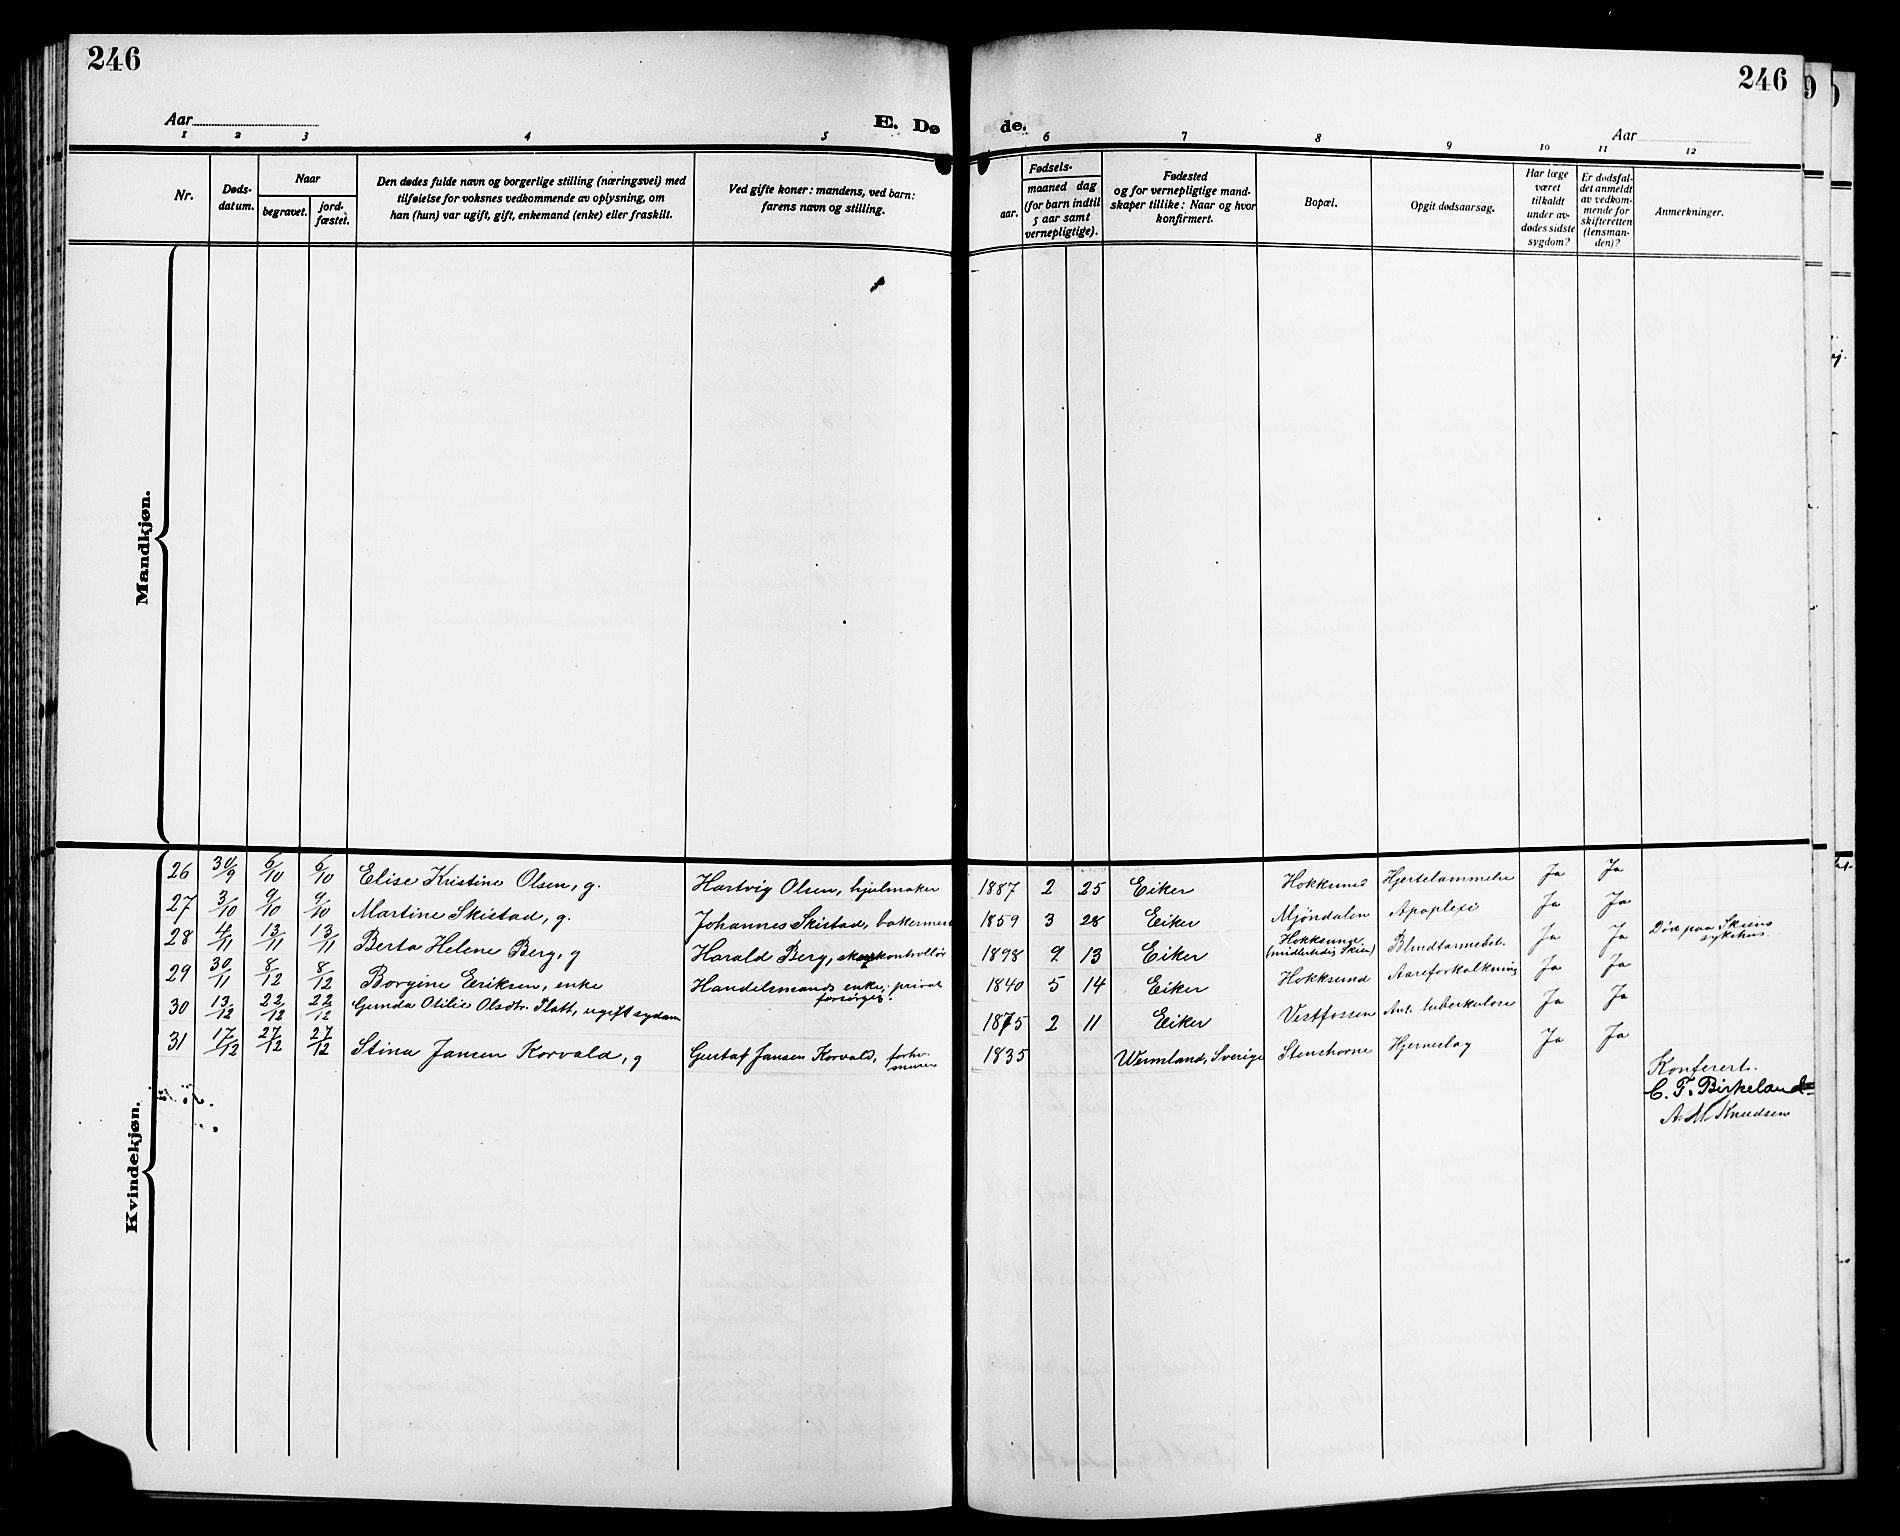 246
246
Aar
E. Dø
de.
Aar
1 2 3 4 5 6 7 8 9 10 11 12
Nr.
Døds-
datum.
Naar
begravet.
jord-
fæstet.
Den dødes fulde navn og borgerlige stilling (næringsvei) med
tilføielse for voksnes vedkommende av oplysning, om
han (hun) var ugift, gift, enkemand (enke) eller fraskilt.
Ved gifte koner: mandens, ved barn:
farens navn og stilling.
Fødsels-
aar.
maaned dag
(for barn indtil
5 aar samt
vernepligtige).
Fødested
og for vernepligtige mand-
skaper tillike: Naar og hvor
konfirmert.
Bopæl.
Opgit dødsaarsag.
Har læge
været
tilkaldt
under av-
dødes sidste
sygdom?
Er dødsfal-
det anmeldt
av vedkom-
mende for
skifteretten
(lensman-
den)?
Anmerkninger.
Mandkjøn.
Kvindekjøn.
26 30/9 6/10 6/10 Elise Kristine Olsen, g. Hartvig Olsen, hjulmaker 1887 2 25 Eiker Hokksund Hjertelammelse Ja Ja
27 3/10 9/10 9/10 Martine Skistad, g. Johannes Skistad, bakermest 1859 3 28 Eiker Mjöndalen Apoplexi Ja Ja
28 4/11 13/11 13/11 Berta Helene Berg, g Harald Berg, kontrollör 1898 9 13 Eiker Hokksund (midlertidig Skien) Blindtarmsbet. Ja Ja Död paa Skiens sykehus.
29 30/11 8/12 8/12 Borgine Eriksen, enke Handelsmands enke, privat forsörget. 1840 5 14 Eiker Hokksund Aareforkalkning Ja Ja
30 13/12 22/12 22/12 Gunda Otilie Olsdtr. Flatt, ugift sydam 1875 2 11 Eiker Vestfossen tuberkulose Ja Ja
31 17/12 27/12 27/12 Stina Jansen Korvald, g Gustaf Jansen Korvald, forhv. murer 1835 Wermland, Sverige Stenshorne Hjerneslag Ja Ja
Konferert.
C. F. Birkeland
A. M. Knudsen